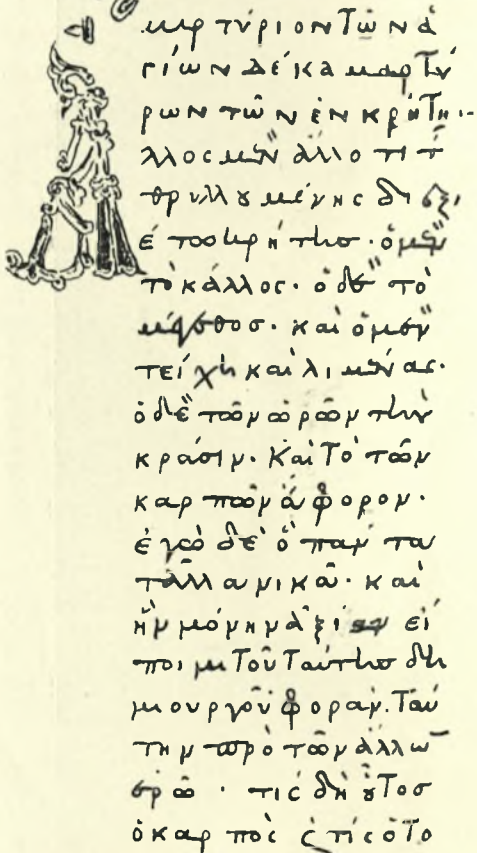 μαρτύριον τῶν ἁ
γίων δέκα μαρτύ
ρων τῶν ἐν κρήτη:-
Ἄλλος μὲν ἄλλο τι τ
θρυλλουμένης
τὸ κάλλος· ὁ δὲ τὸ
μέγεθος· καὶ ὁ μὲν
τείχη καὶ λιμένας·
ὁ δὲ τῶν ὡρῶν τὴν
κρᾶσιν· καὶ τὸ τῶν
καρπῶν ἄφορον·
ἐγὼ δὲ ὃ πάντα
τἄλλα νικᾶ· καὶ
ἣν μόνην ἄξιον εἰ
ποιμι τοῦ ταύτης δη
μιουργοῦ φοράν. ταύ
την πρὸ τῶν ἄλλω
ἐρῶ· τίς δὴ οὗτος
ὁ καρπὸς